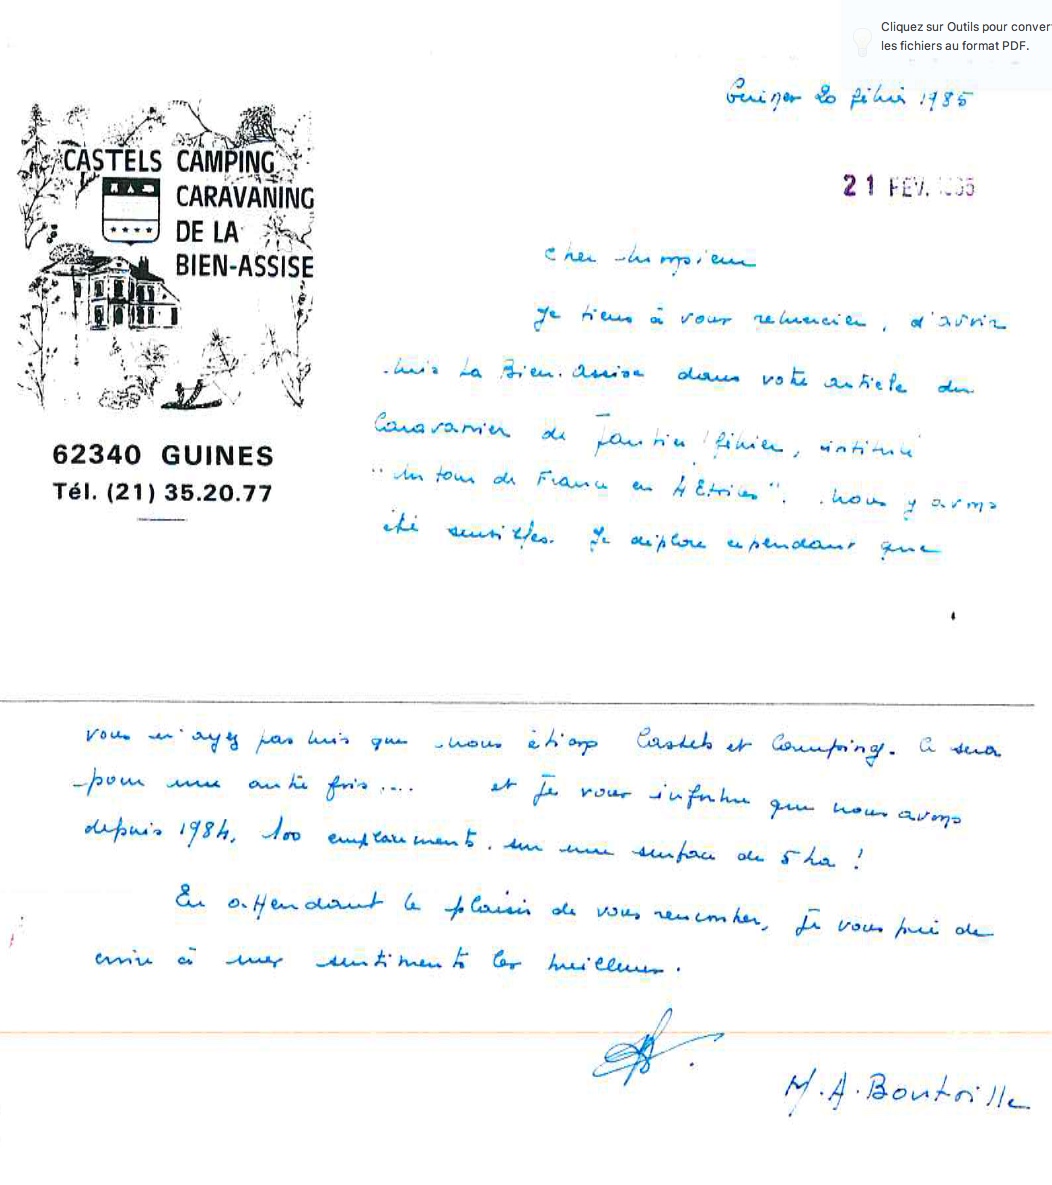 Cliquez sur Outils pour conver
les fichiers au format PDF.
Guines 20 février 1985
21 FEV. 1985
CASTELS CAMPING
CARAVANING
DE LA
BIEN-ASSISE
62340 GUINES
Tél. (21) 35.20.77
Cher Monsieur
Je tiens à vous remercier, d'avoir
mis La Bien-Assise dans votre article du
Caravanier de Janvier/février, intitulé
"Un tour de France en 4 Etoiles". Nous y avons
été sensibles. Je déplore cependant que
vous n'ayez pas mis que nous étions Castels et Camping. Ce sera
pour une autre fois.... et Je vous informe que nous avons
depuis 1984, 100 emplacements, sur une surface de 5 ha !
En attendant le plaisir de vous rencontrer, Je vous prie de
croire à mes sentiments les meilleurs.
M.A. Boutoille